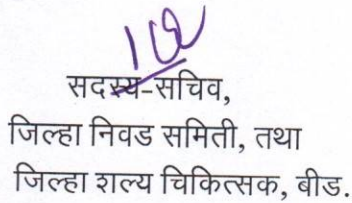 सदस्य-सचिव,
जिल्हा निवड समिती, तथा
जिल्हा शल्य चिकित्सक, बीड.